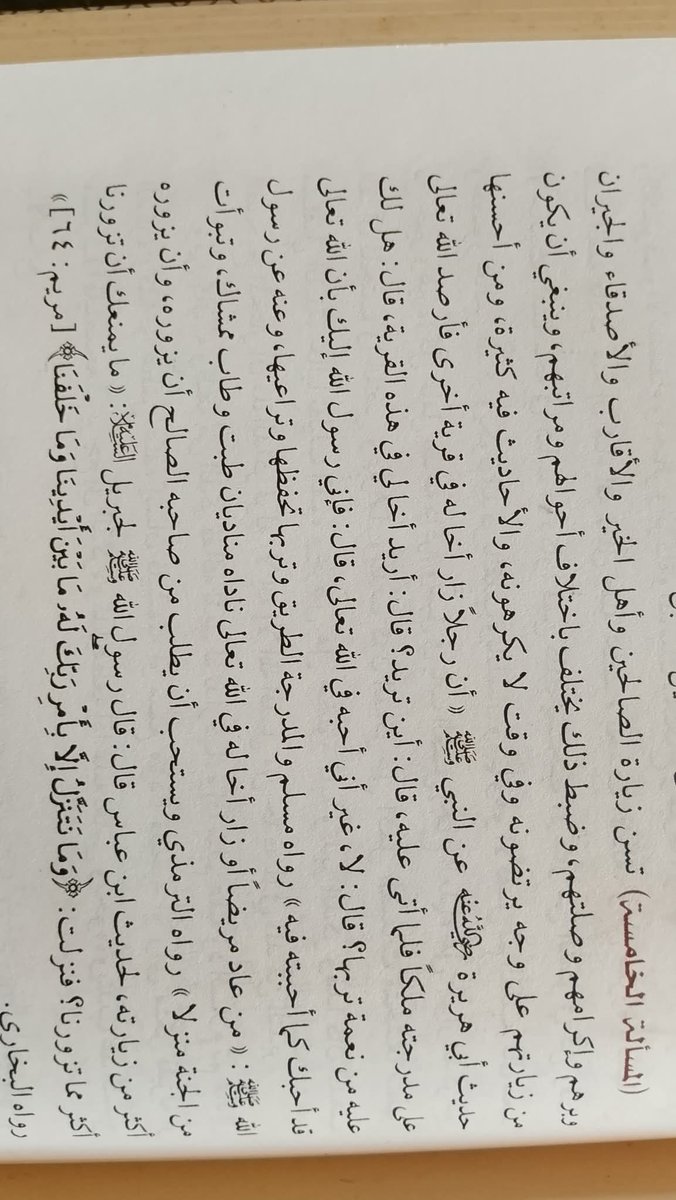 (المسألة الخامسة) تسن زيارة الصالحين وأهل الخير والأقارب والأصدقاء والجيران
وبرهم وإكرامهم وصلتهم، وضبط ذلك يختلف باختلاف أحوالهم ومراتبهم، وينبغي أن يكون
من زيارتهم على وجه يرتضونه وفي وقت لا يكرهونه، والأحاديث فيه كثيرة، ومن أحسنها
حديث أبي هريرة رضي الله عنه عن النبي ﷺ «أن رجلاً زار أخا له في قرية أخرى فأرصد الله تعالى
على مدرجته ملكاً فلما أتى عليه، قال: أين تريد؟ قال: أريد أخا لي في هذه القرية، قال: هل لك
عليه من نعمة تربها؟ قال: لا، غير أني أحبه في الله تعالى، قال: فإني رسول الله إليك بأن الله تعالى
قد أحبك كما أحببته فيه» رواه مسلم والمدرجة الطريق وتربها تحفظها وتراعيها، وعنه عن رسول
الله ﷺ: «من عاد مريضاً أو زار أخا له في الله تعالى ناداه مناديان طبت وطاب ممشاك، وتبوأت
من الجنة منزلا» رواه الترمذي ويستحب أن يطلب من صاحبه الصالح أن يزوره، وأن يزوره
أكثر من زيارته، لحديث ابن عباس قال: قال رسول الله ﷺ لجبريل عليه السلام: «ما يمنعك أن تزورنا
أكثر مما تزورنا؟ فنزلت: ﴿وَمَا نَتَنَزَّلُ إِلَّا بِأَمْرِ رَبِّكَ لَهُۥ مَا بَيْنَ أَيْدِينَا وَمَا خَلْفَنَا﴾ [مريم: ٦٤]»
رواه البخاري.